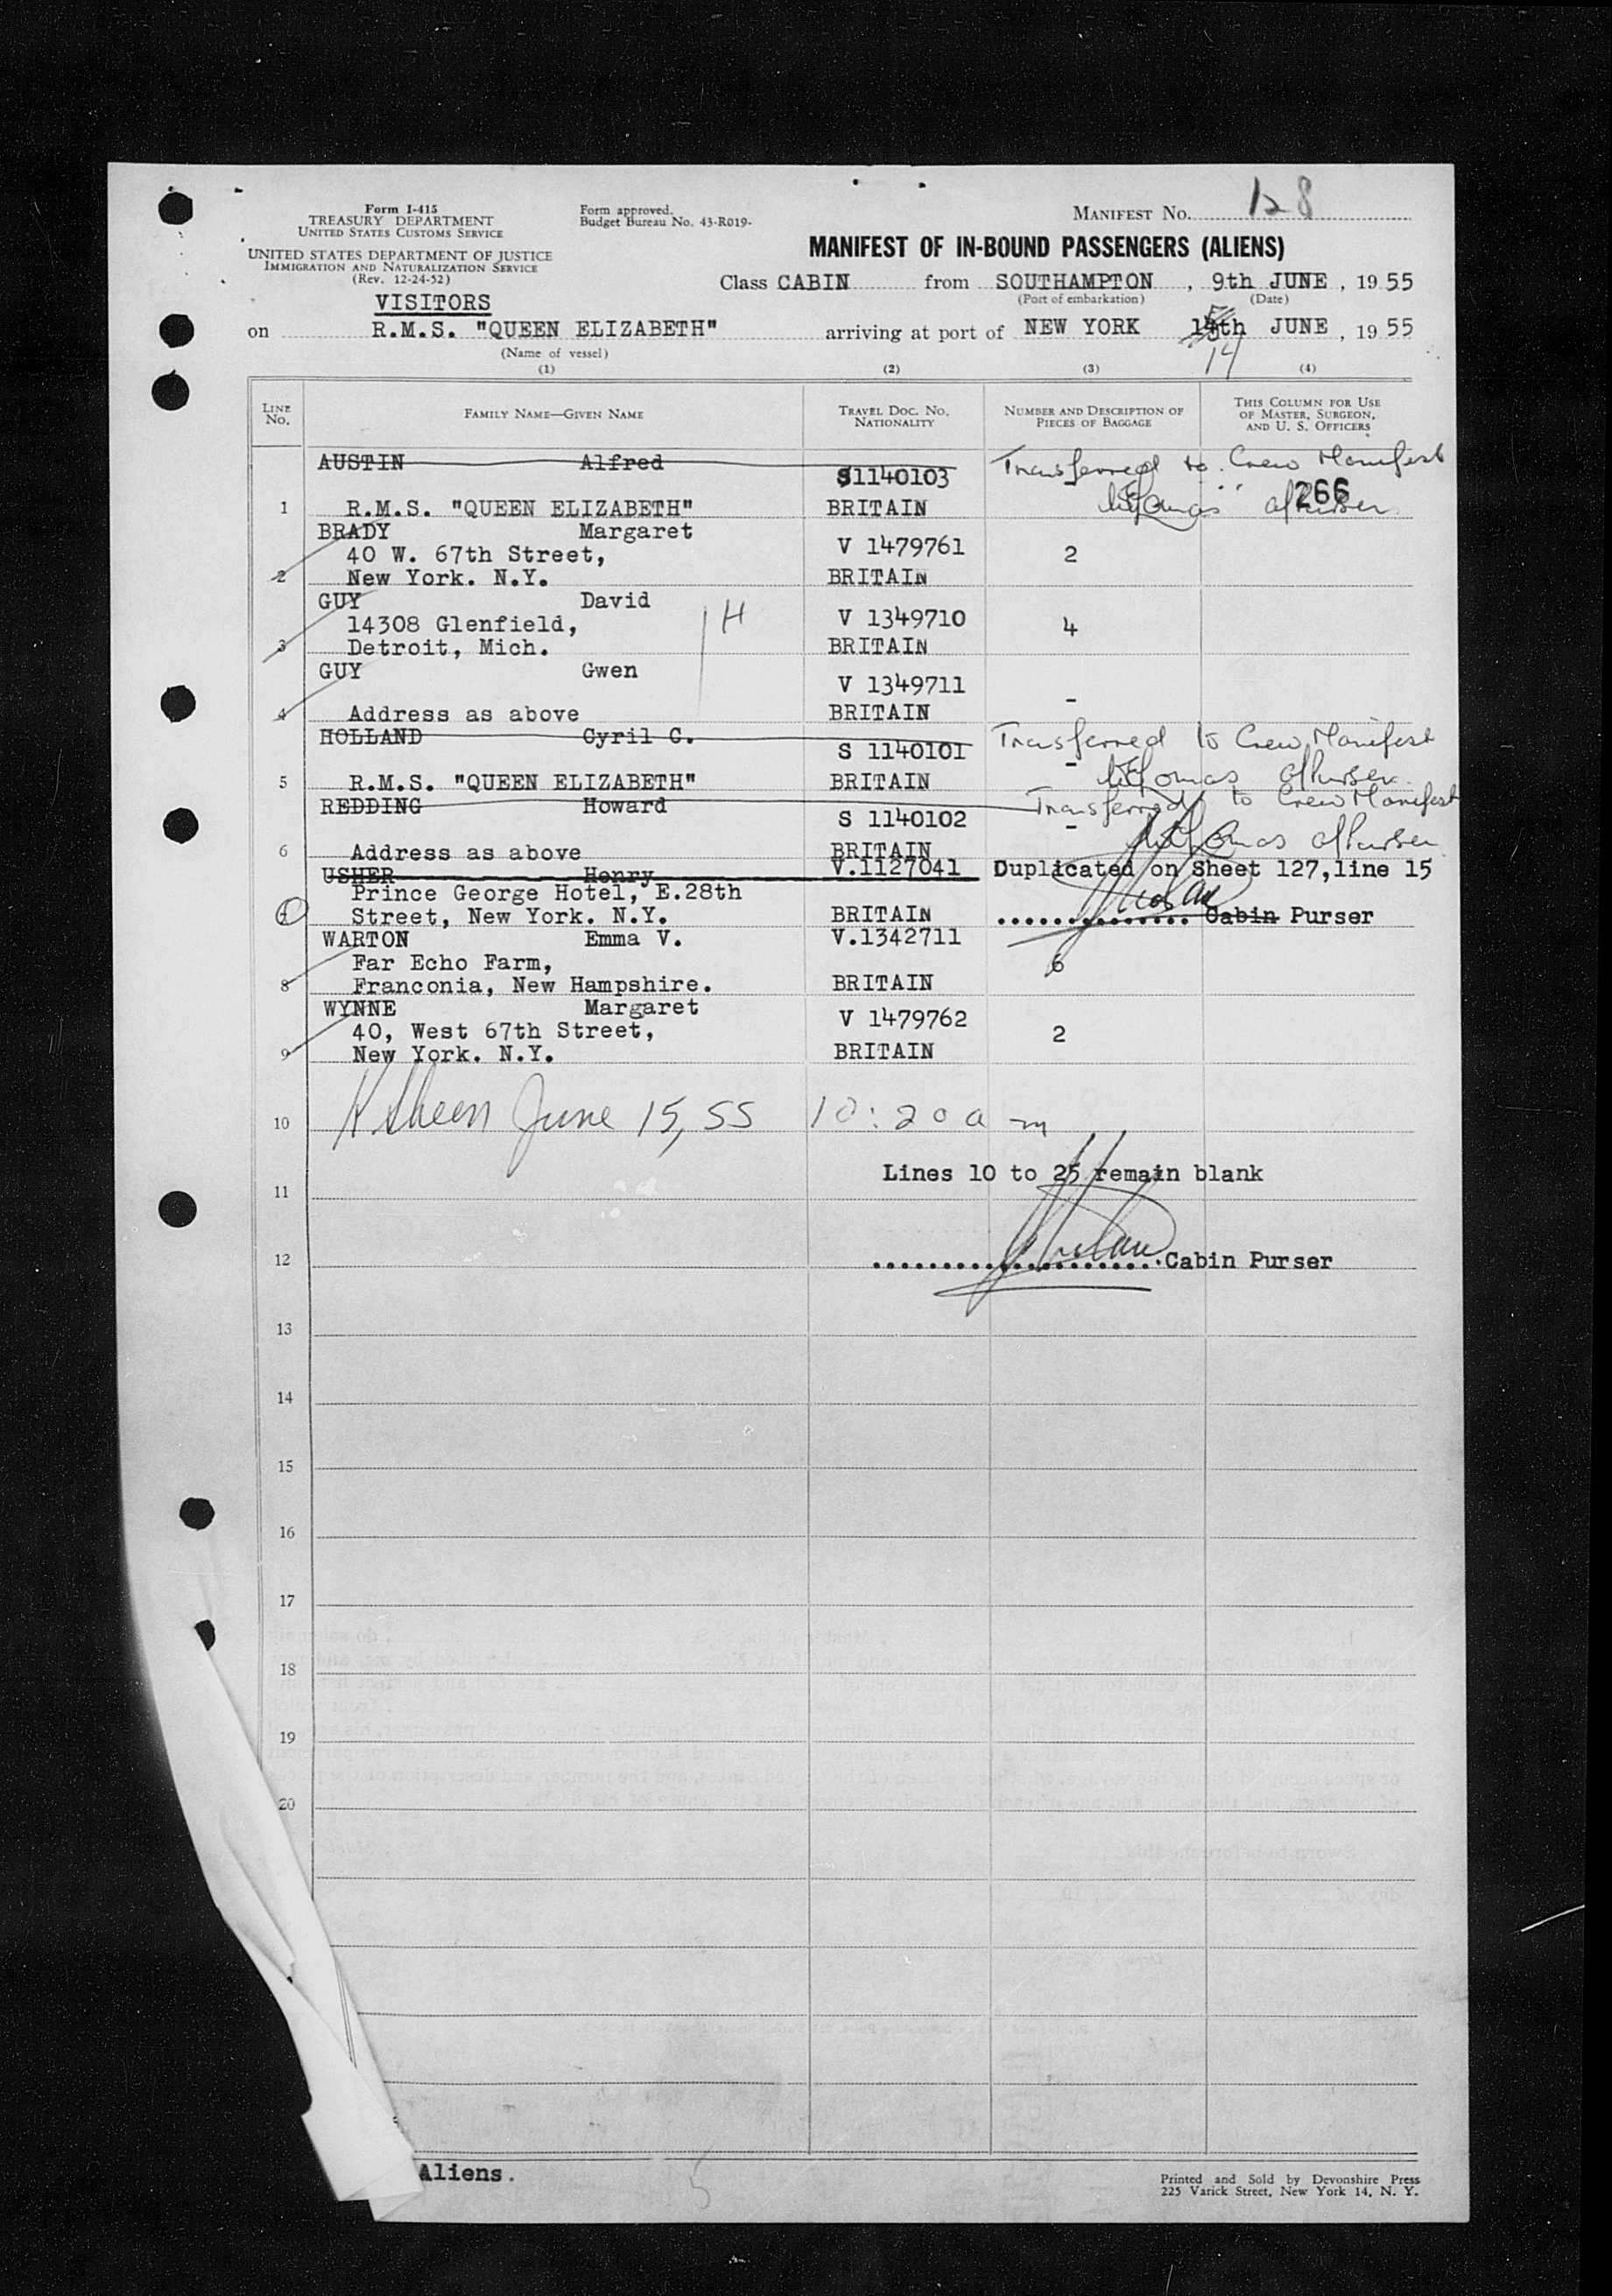 Form I-415
TREASURY DEPARTMENT
UNITED STATES CUSTOMS SERVICE
UNITED STATES DEPARTMENT OF JUSTICE
IMMIGRATION AND NATURALIZATION SERVICE
(Rev. 12-24-52)
Form approved.
Budget Bureau No. 43-R019-
MANIFEST No. 128
MANIFEST OF IN-BOUND PASSENGERS (ALIENS)
Class CABIN from SOUTHAMPTON, 9th JUNE, 1955
(Port of embarkation) (Date)
VISITORS
on R.M.S. "QUEEN ELIZABETH" arriving at port of NEW YORK 14th JUNE, 1955
(Name of vessel) 14
(1) (2) (3) (4)
LINE No. FAMILY NAME—GIVEN NAME TRAVEL DOC. No. NATIONALITY NUMBER AND DESCRIPTION OF PIECES OF BAGGAGE THIS COLUMN FOR USE OF MASTER, SURGEON, AND U. S. OFFICERS
AUSTIN Alfred S1140103 - Transferred to Crew Manifest
266
1 R.M.S. "QUEEN ELIZABETH" BRITAIN
BRADY Margaret
40 W. 67th Street, V 1479761 2
2 New York. N.Y. BRITAIN
GUY David
14308 Glenfield, V 1349710 4
3 Detroit, Mich. BRITAIN
H
GUY Gwen
V 1349711 -
4 Address as above BRITAIN
HOLLAND Cyril C. S 1140101 - Transferred to Crew Manifest
5 R.M.S. "QUEEN ELIZABETH" BRITAIN
REDDING Howard S 1140102 - Transferred to Crew Manifest
6 Address as above BRITAIN
USHER Henry V.1127041 Duplicated on Sheet 127,line 15
Prince George Hotel, E.28th
7 Street, New York. N.Y. BRITAIN ............... Cabin Purser
WARTON Emma V. V.1342711
Far Echo Farm, 6
8 Franconia, New Hampshire. BRITAIN
WYNNE Margaret
40, West 67th Street, V 1479762 2
9 New York. N.Y. BRITAIN
10 June 15, 55 10:20 a m
Lines 10 to 25 remain blank
11
12 ......................Cabin Purser
13
14
15
16
17
18
19
20
Aliens.
5
Printed and Sold by Devonshire Press
225 Varick Street, New York 14, N. Y.